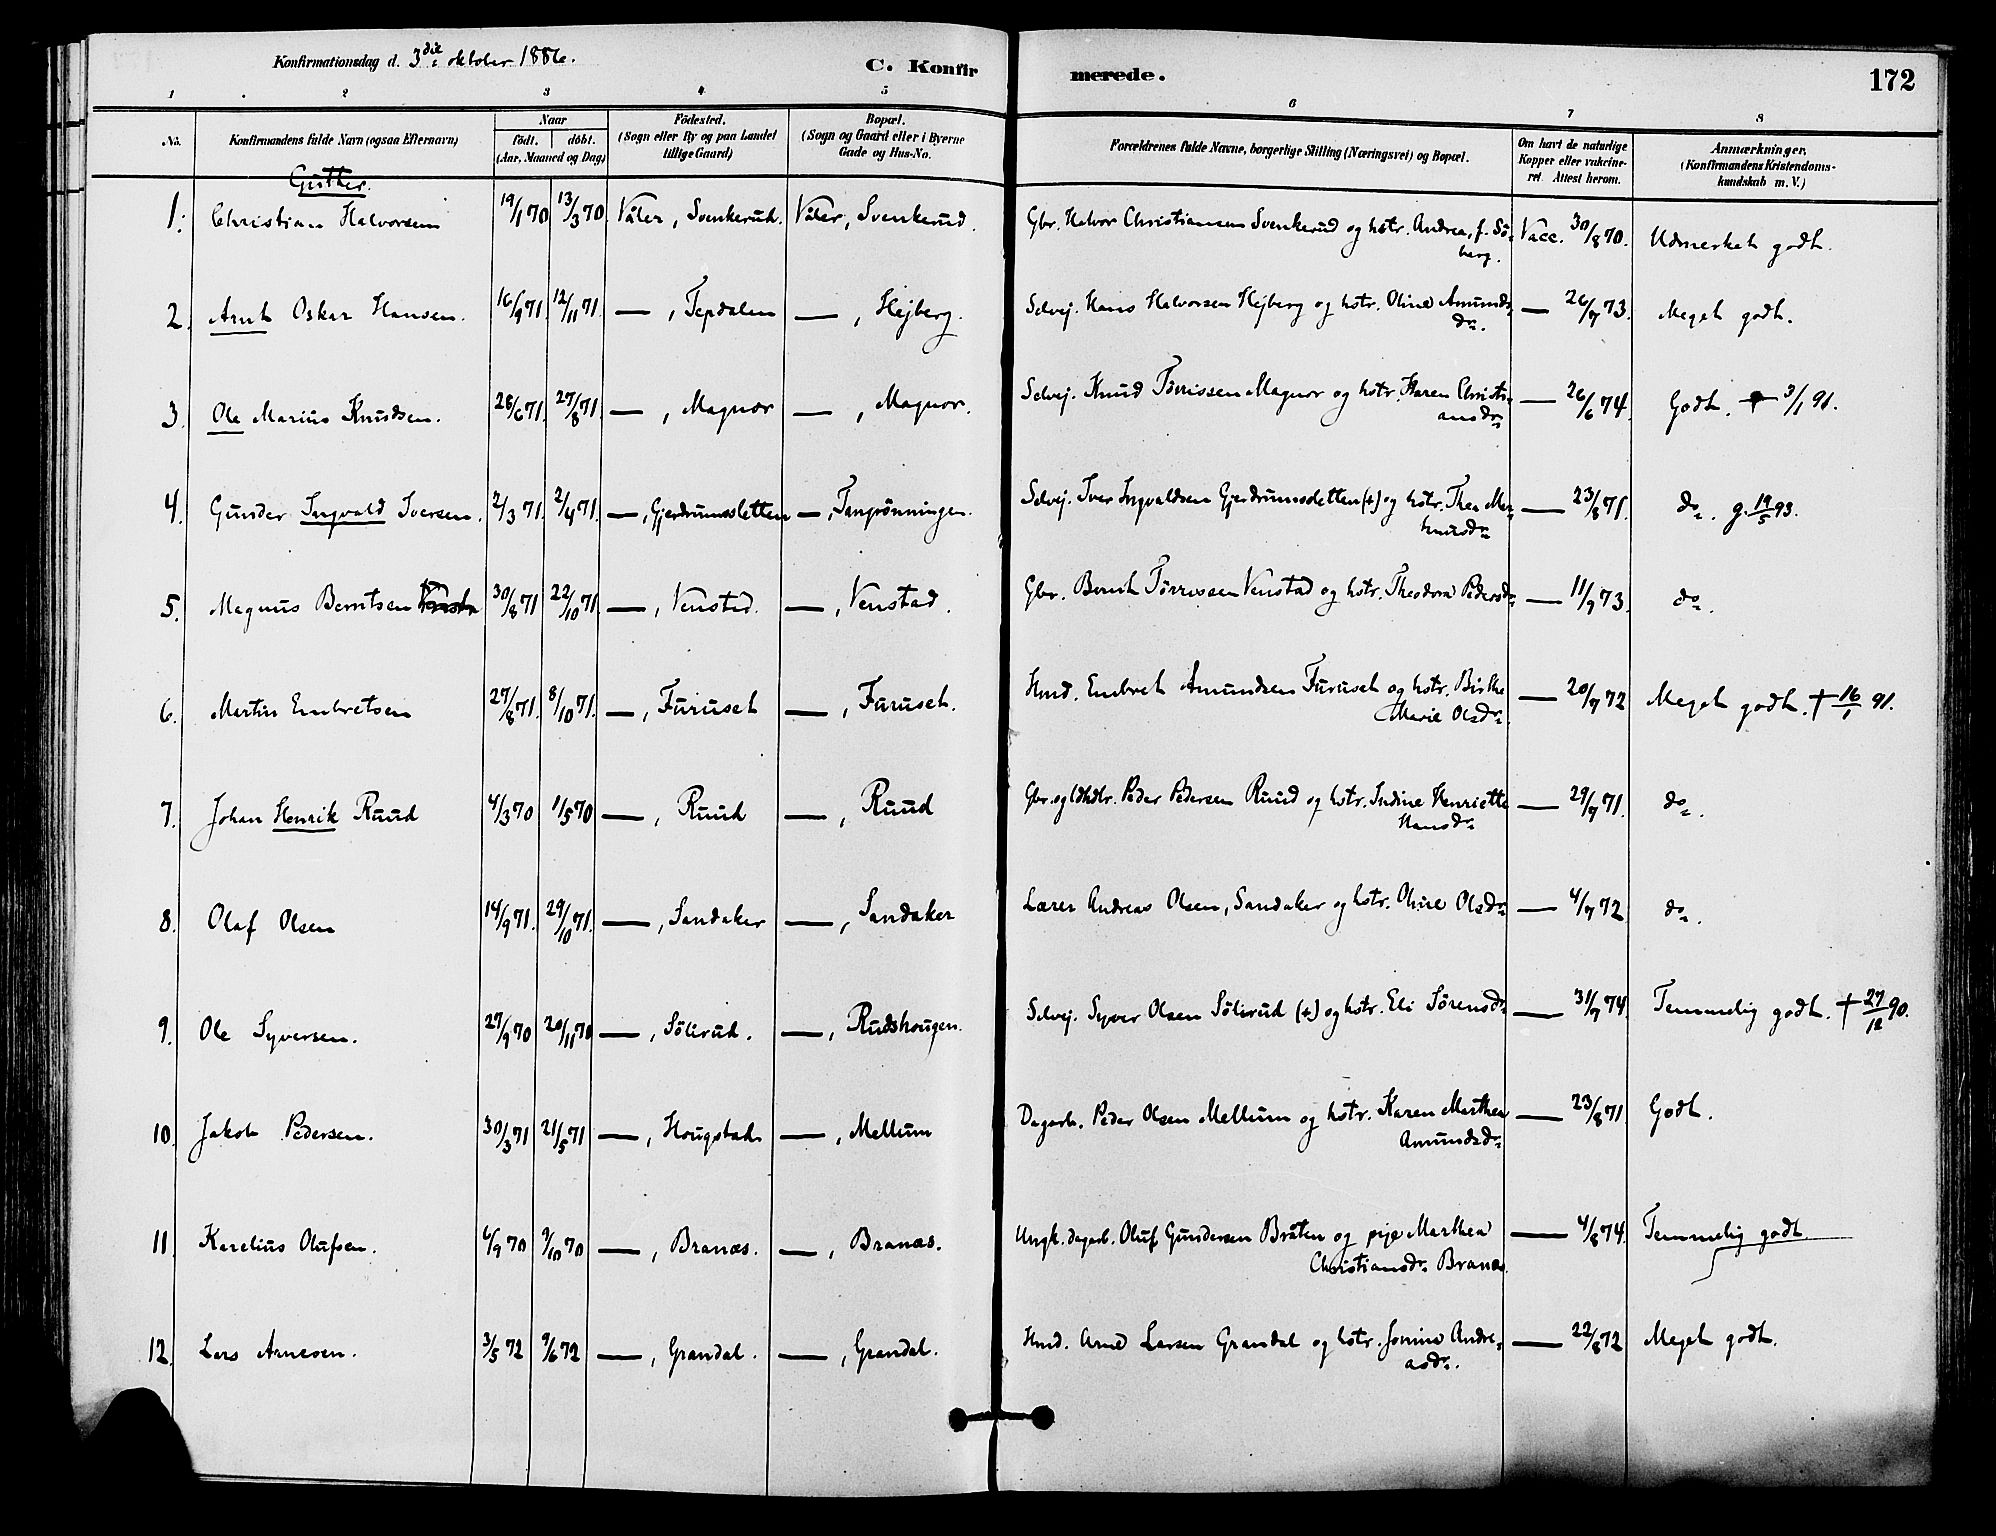 Konfirmationsdag d. 3die oktober 1886.
C. Konfirmerede.
172
1 2 3 4 5 6 7 8
No. Konfirmandens fulde Navn (ogsaa Efternavn) Naar födt. döbt. (Aar, Maaned og Dag) Födested. (Sogn eller By og paa Landet tillige Gaard) Bopæl. (Sogn og Gaard eller i Byerne Gade og Hus-No. Forældrenes fulde Navne, borgerlige Stilling (Næringsvei) og Bopæl. Om havt de naturlige Kopper eller vakcineret. Attest herom. Anmærkninger. (Konfirmandens Kristendomskundskab m. V.)
Gutter.
1. Christian Halvorsen 19/1 70 13/3 70. Våler, Svenkerud. Våler, Svenkerud. Gbr. Halvor Christiansen Svenkerud og hstr. Andrea, f. Sö- Vacc. 30/8 70. Udmerket godt.
berg.
2. Arnt Oskar Hansen. 16/9 71. 12/11 71. — , Tepdalen — , Hejberg. Selvej. Hans Halvorsen Hejberg og hstr. Oline Amunds- — 26/7 73. Meget godt.
dr.
3. Ole Marius Knudsen. 28/6 71. 27/8 71 — , Magnor — , Magnor. Selvej. Knud Törrissen Magnor og hstr. Karen Christi- — 26/6 74. Godt. + 3/1 91.
ansdr
4. Gunder Ingvald Iversen. 2/3 71. 2/4 71. — , Gjerdrumssletten — , Tanrönningen. Selvej. Iver Ingvaldsen Gjerdrumssletten (+) og hstr. Thea Mar- — 23/8 71. do. g. 19/5 93.
5. Magnus Berntsen 30/8 71 22/10 71. — , Venstad. — , Venstad. Gbr. Bernt Törrissen Venstad og hstr. Theodora Pedersdr — 11/9 73. do.
6. Martin Embretsen 27/8 71. 8/10 71. — , Furuset — , Furuset. Hmd. Embret Amundsen Furuset og hstr. Birthe — 20/7 72 Meget godt. + 16/1 91.
Marie Olsdr.
7. Johan Henrik Ruud 4/3 70 1/5 70 — , Ruud — , Ruud Gbr. og ldhdlr. Peder Pedersen Ruud og hstr. Indine Henriette — 29/7 71. do.
Hansdr
8. Olaf Olsen 14/9 71. 29/10 71. — , Sandaker — , Sandaker Lærer Andreas Olsen, Sandaker og hstr. Oline Olsdr — 4/7 72 do.
9. Ole Syversen. 27/9 70 20/11 70 — , Sölirud. — , Rudshougen. Selvej. Syver Olsen Sölirud (+) og hstr. Eli Sörensdr — 31/7 74. Temmelig godt. + 27/12 90.
10. Jakob Pedersen. 30/3 71 21/5 71 — , Hougstad — , Mellum Dagarb. Peder Olsen Mellum og hstr. Karen Marthea — 23/8 71. Godt.
Amundsdr
11. Karelius Olufsen. 6/9 70 9/10 70 — , Branæs. — , Branæs. Ungk. dagarb. Oluf Gundersen Bråten og pige Marthea — 4/8 74. Temmelig godt.
Christiansdr. Branæs.
12. Lars Arnesen. 3/5 72 9/6 72 — , Grandal. — , Grandal. Hmd. Arne Larsen Grandal og hstr. Jonine Andre- — 22/8 72 Meget godt.
asdr.